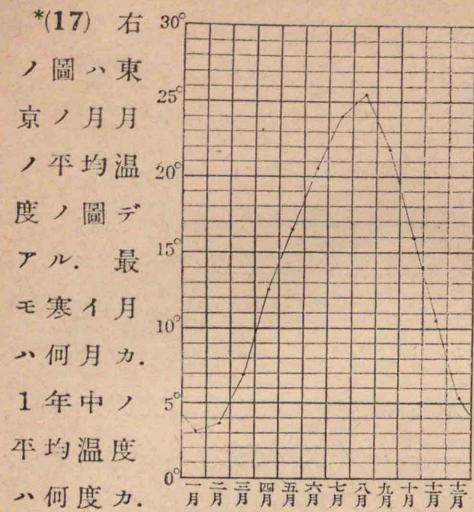 *(17) 右
ノ圖ハ東
京ノ月月
ノ平均溫
度ノ圖デ
アル. 最
モ寒イ月
ハ何月カ.
1年中ノ
平均溫度
ハ何度カ.
30°
25°
20°
15°
10°
5°
0°
一月 二月 三月 四月 五月 六月 七月 八月 九月 十月 十一月 十二月